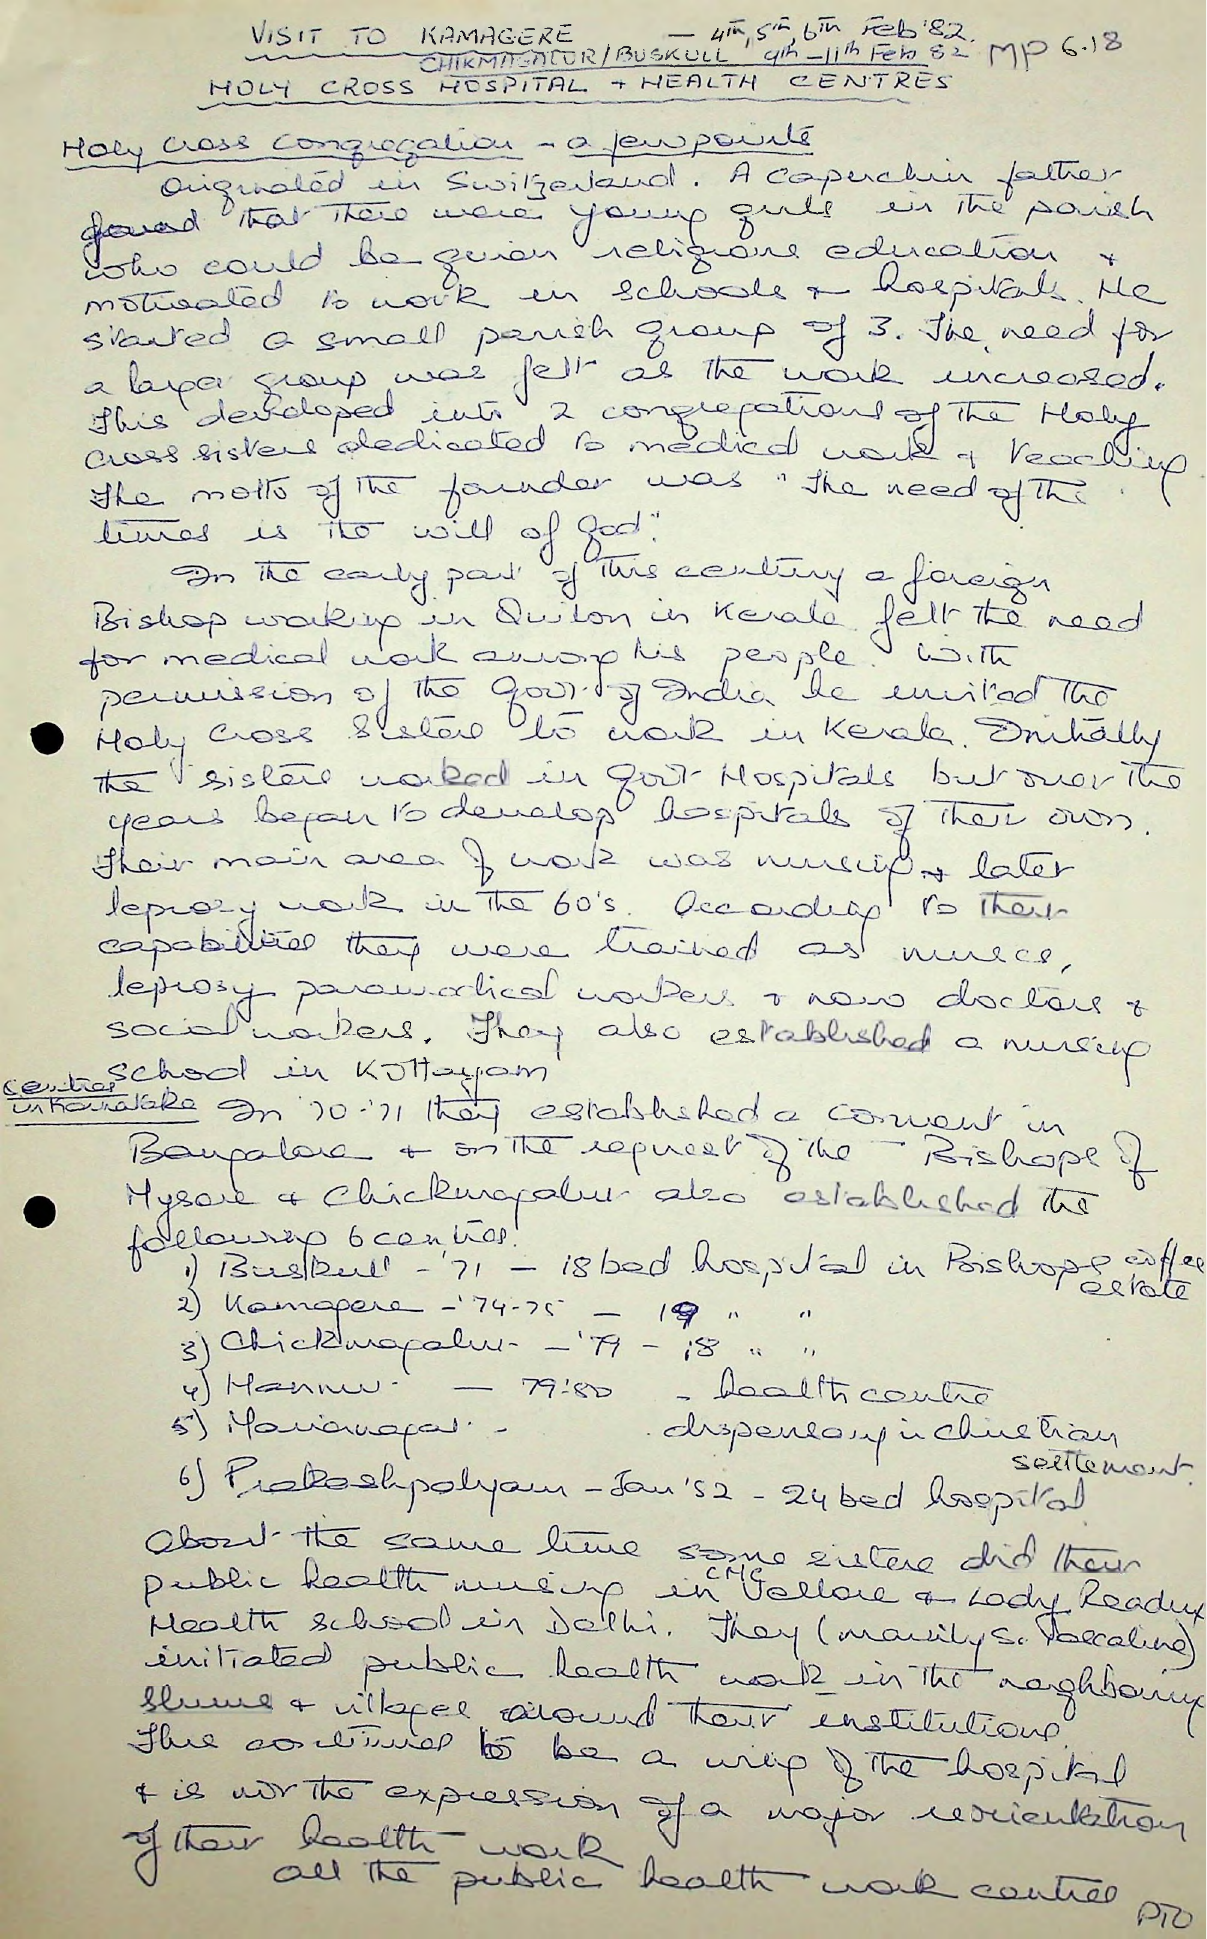 VISIT TO KAMAGERE — 4th, 5th, 6th Feb '82.
CHIKMAGALUR/BUSKULL 9th–11th Feb 82 MP 6.18
HOLY CROSS HOSPITAL + HEALTH CENTRES
Holy Cross Congregation - a few points
Originated in Switzerland. A Capuchin father
found that there were young girls in the parish
who could be given religious education &
motivated to work in schools & hospitals. He
started a small parish group of 3. The need for
a larger group was felt as the work increased.
This developed into 2 congregations of the Holy
Cross sisters dedicated to medical work & teaching
The motto of the founder was "The need of the
times is the will of God."
In the early part of this century a foreign
Bishop working in Quilon in Kerala felt the need
for medical work among his people. With
permission of the Govt. of India he invited the
Holy Cross Sisters to work in Kerala. Initially
the sisters worked in Govt Hospitals but over the
years began to develop hospitals of their own.
Their main area of work was nursing & later
leprosy work in the 60's. According to their
capabilities they were trained as nurses,
leprosy paramedical workers & now doctors &
social workers. They also established a nursing
school in Kottayam
Centres
in Karnataka In '70-'71 they established a convent in
Bangalore & on the request of the Bishops of
Mysore & Chickmagalur also established the
following 6 centres.
1) Buskull - '71 — 18 bed hospital in Bishops coffee
estate
2) Kamagere - '74-75 — 19 " "
3) Chickmagalur - '79 - 18 " "
4) Hannur - 79-'80 - health centre
5) Marianagar - dispensary in Christian
settlement.
6) Prakashpalyam - Jan '82 - 24 bed hospital
About the same time some sisters did their
public health nursing in CMC Vellore & Lady Reading
Health School in Delhi. They (mainly Sr. Pascaline)
initiated public health work in the neighbouring
slums & villages around their institutions.
This continues to be a wing of the hospital
& is not the expression of a major reorientation
of their health work
All the public health work centres
PTO